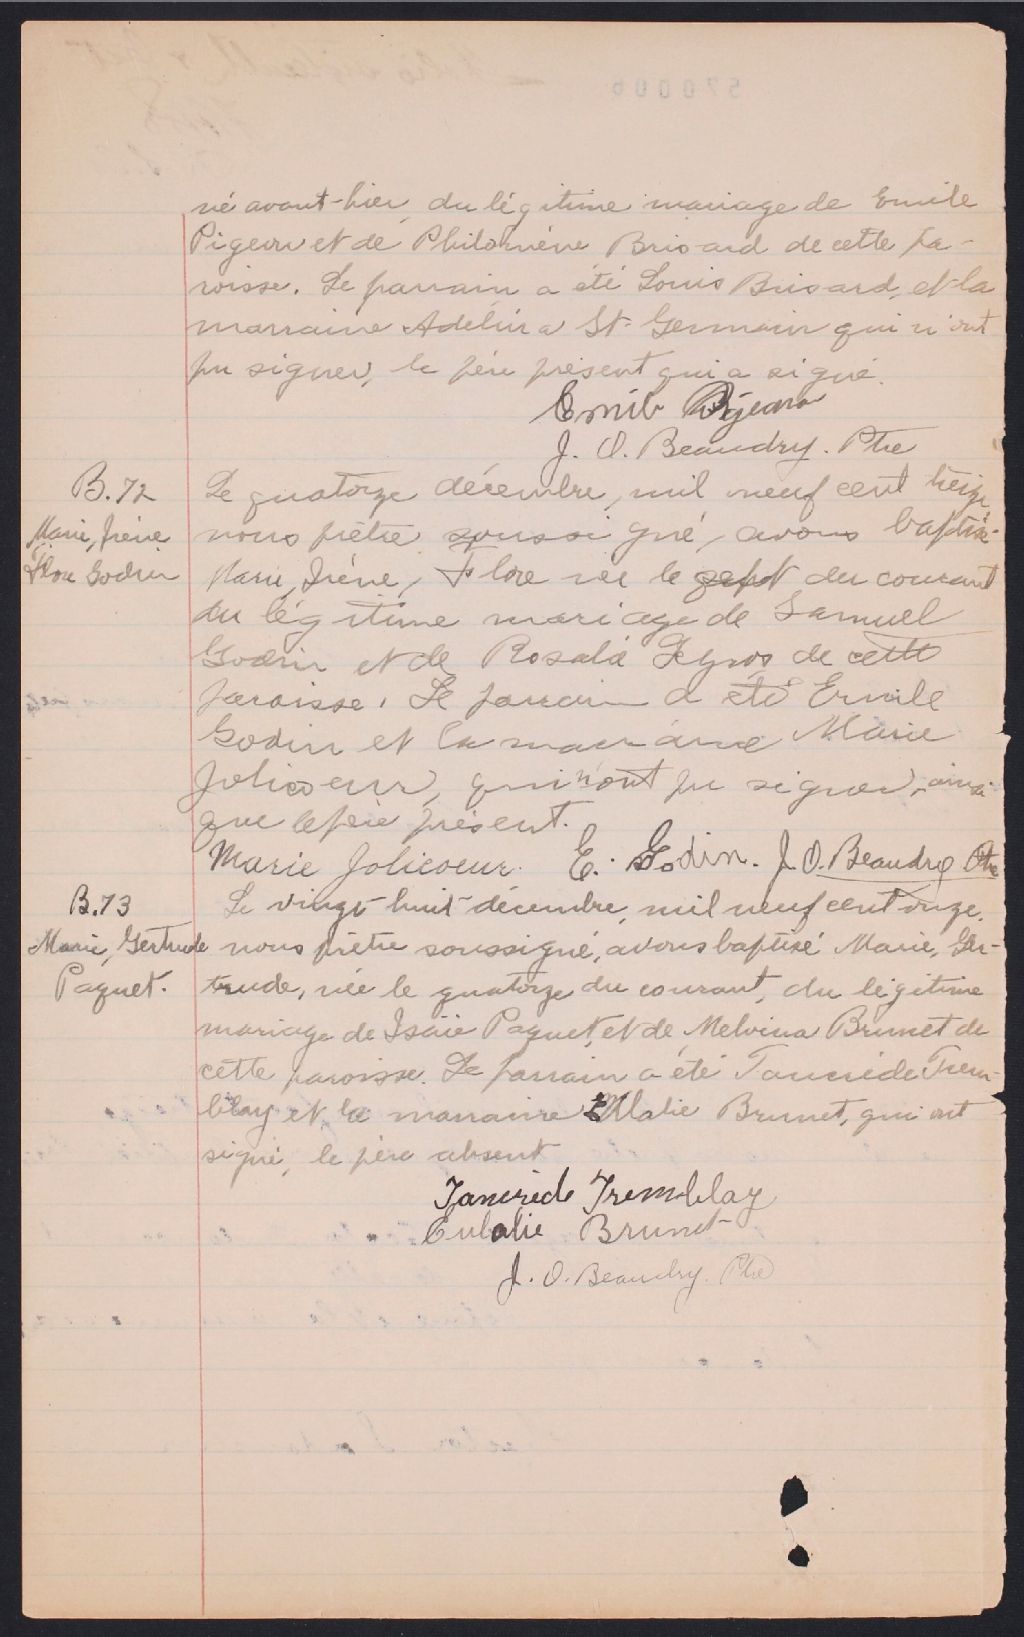 né avant-hier, du légitime mariage de Emile
Pigeon et de Philomène Brisard de cette pa-
roisse. Le parrain a été Louis Brisard, et la
marraine Adelina St-Germain qui n'ont
pu signer, le père présent qui a signé.
Emile Pigeon
J. O. Beaudry. Ptre
B. 72
Marie, Irène
Flore Godin
Le quatorze décembre, mil neuf cent treize,
nous prêtre soussigné, avons baptisé
Marie, Irène, Flore née le sept du courant
du légitime mariage de Samuel
Godin et de Rosalé Legros de cette
paroisse. Le parrain a été Emile
Godin et la marraine Marie
Jolicoeur, qui n'ont pu signer, ainsi
que le père présent.
Marie Jolicoeur. E. Godin. J. O. Beaudry Ptre
B. 73
Marie, Gertrude
Paquet.
Le vingt-huit décembre, mil neuf cent onze,
nous prêtre soussigné, avons baptisé Marie, Ger-
trude, née le quatorze du courant, du légitime
mariage de Isaïe Paquet, et de Melvina Brunet de
cette paroisse. Le parrain a été Tancrède Trem-
blay et la marraine Brunet, qui ont
signé, le père absent
Tancrède Tremblay
Eulalie Brunet
J. O. Beaudry. Ptre